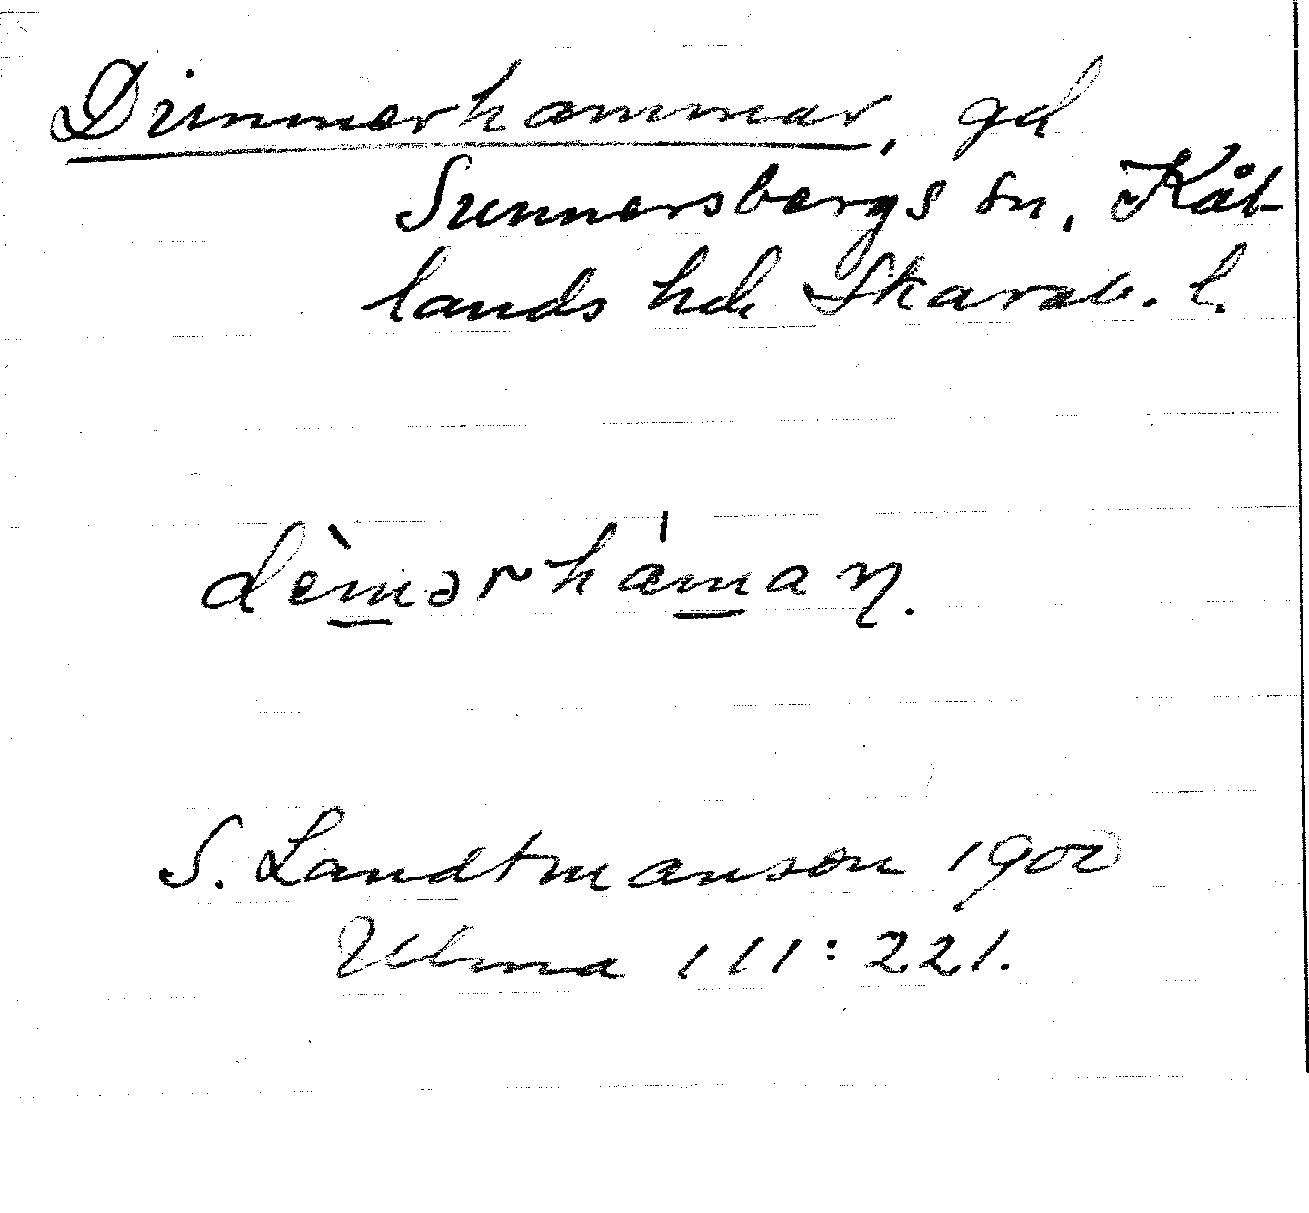 Dimmerhammar, gd
Sunnersbergs sn, Kål-
lands hd Skarab. l.
dèmərháman.
S. Landtmanson 1900
Ulma 111:221.